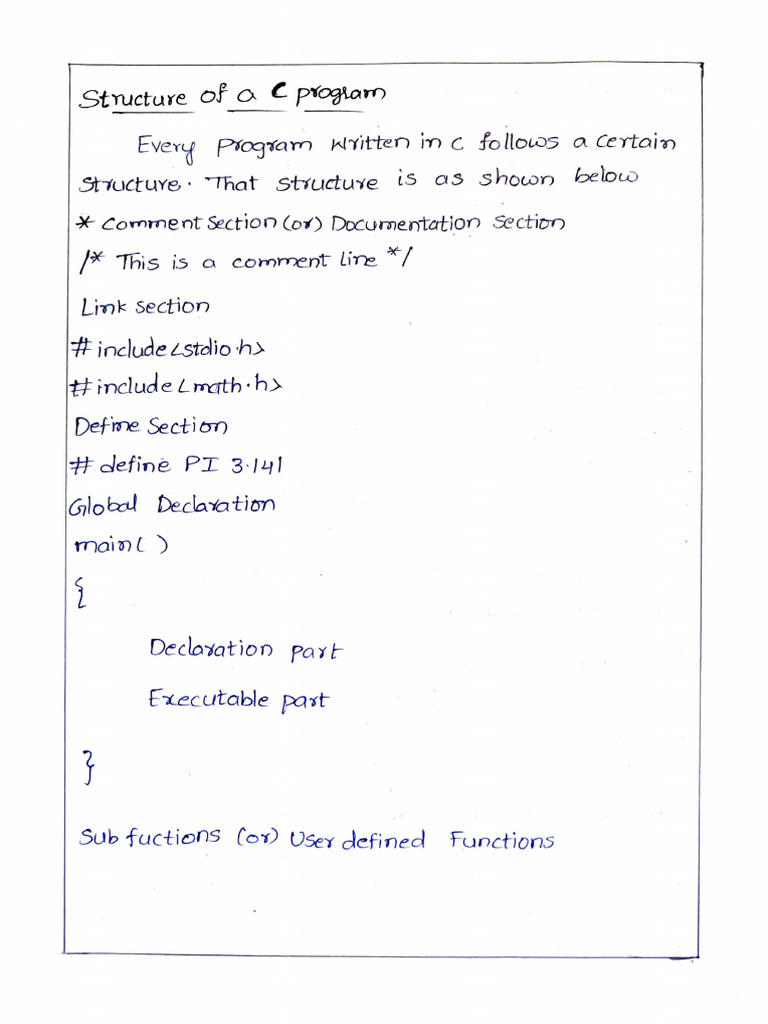 Structure of a C program
Every program written in c follows a certain
structure. That structure is as shown below
* Comment section (or) Documentation section
/* This is a comment line */
Link section
#include<stdio.h>
#include<math.h>
Define section
# define PI 3.141
Global Declaration
main( )
{
Declaration part
Executable part
}
Sub fuctions (or) User defined Functions